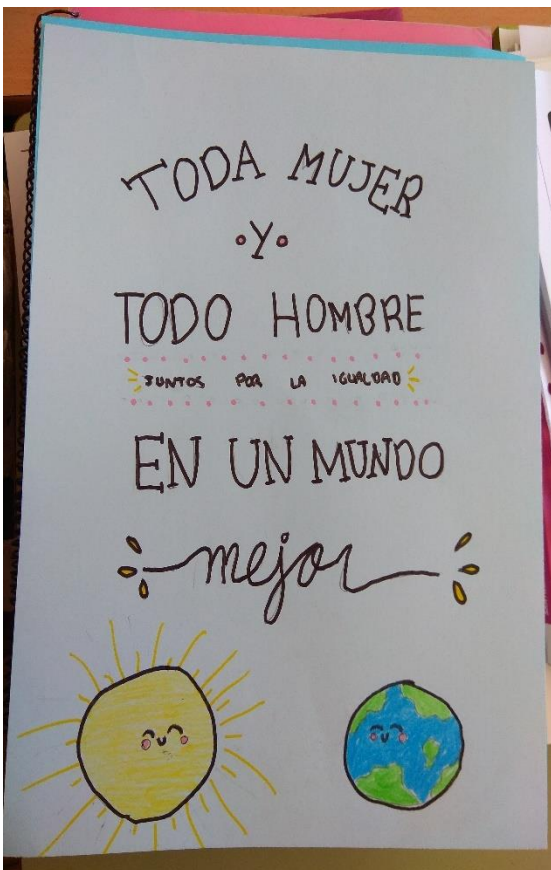 TODA MUJER
Y
TODO HOMBRE
JUNTOS POR LA IGUALDAD
EN UN MUNDO
mejor